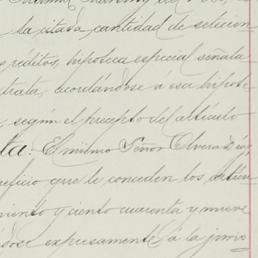 la citada cantidad de setecien
créditos, hipoteca especial señala
trata, acordándose á esa hipote
, según el precepto del artículo
ta: El mismo Señor Olvera
eficio que le conceden los
ciento cuarenta y nueve
dose expresamente á la